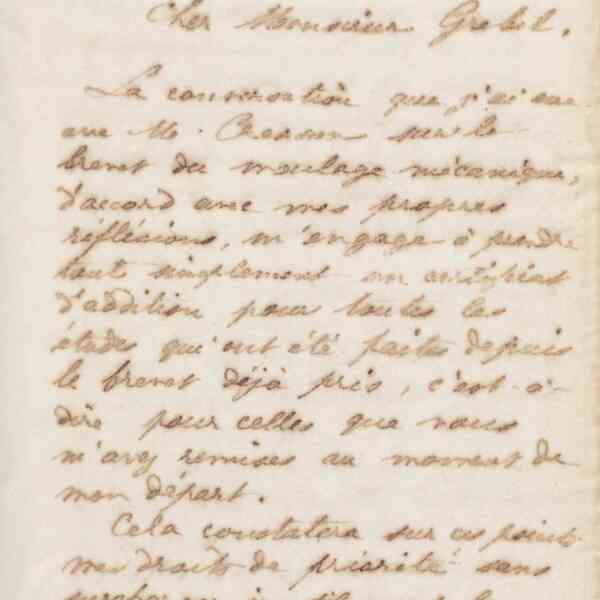 Cher Monsieur Grebel.
La conversation que j'ai eue
avec M. sur le
brevet du moulage mécanique,
d'accord avec mes propres
réflexions, m'engage à prendre
tout simplement un certificat
d'addition pour toutes les
études qui ont été faites depuis
le brevet déjà pris, c'est-à-
dire pour celles que vous
m'avez remises au moment de
mon départ.
Cela constatera sur ces points
mes droits de priorité sans